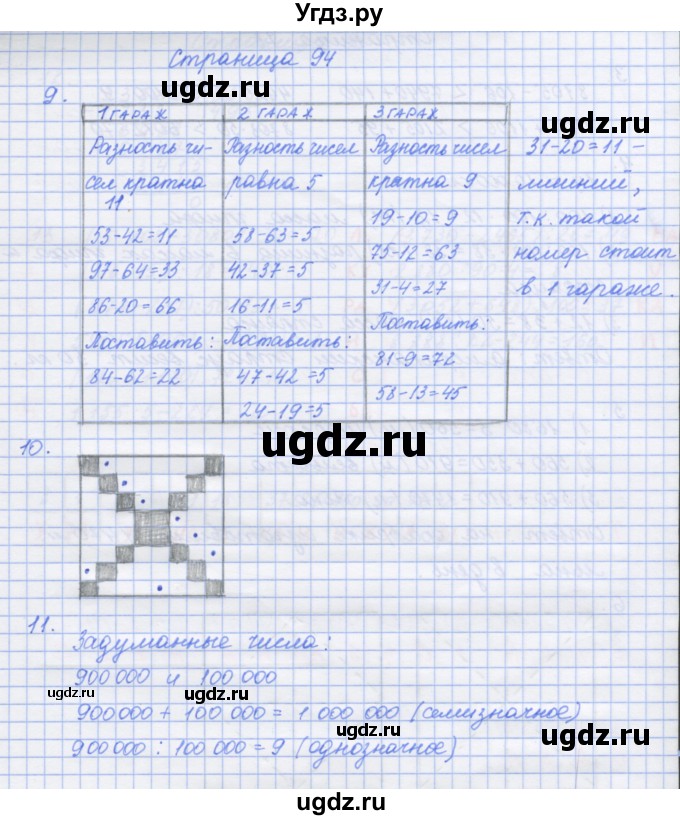 Угдз.ру
Страница 94
ugdz.ru
9.
1 ГАРАЖ
Разность чи-
сел кратна
11
53-42=11
97-64=33
86-20=66
Поставить:
84-62=22
2 ГАРАЖ
Разность чисел
равна 5
58-63=5
42-37=5
16-11=5
Поставить:
47-42=5
24-19=5
3 ГАРАЖ
Разность чисел
кратна 9
19-10=9
75-12=63
31-4=27
Поставить:
81-9=72
58-13=45
31-20=11 -
лишний,
т.к. такой
номер стоит
в 1 гараже.
ugdz.ru
ugdz.ru
ugdz.ru
ugdz.ru
ugdz.ru
ugdz.ru
ugdz.ru
10.
ugdz.ru
ugdz.ru
11.
Задуманные числа:
900 000 и 100 000
900 000 + 100 000 = 1 000 000 (семизначное)
900 000 : 100 000 = 9 (однозначное)
ugdz.ru
ugdz.ru
ugdz.ru
ugdz.ru
ugdz.ru